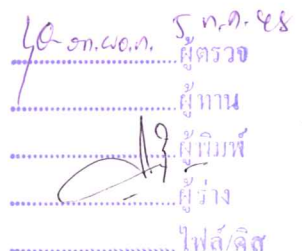 ธ.ค. 48
ผู้ตรวจ
ผู้ทาน
ผู้พิมพ์
ผู้ร่าง
ไฟล์/ดิส